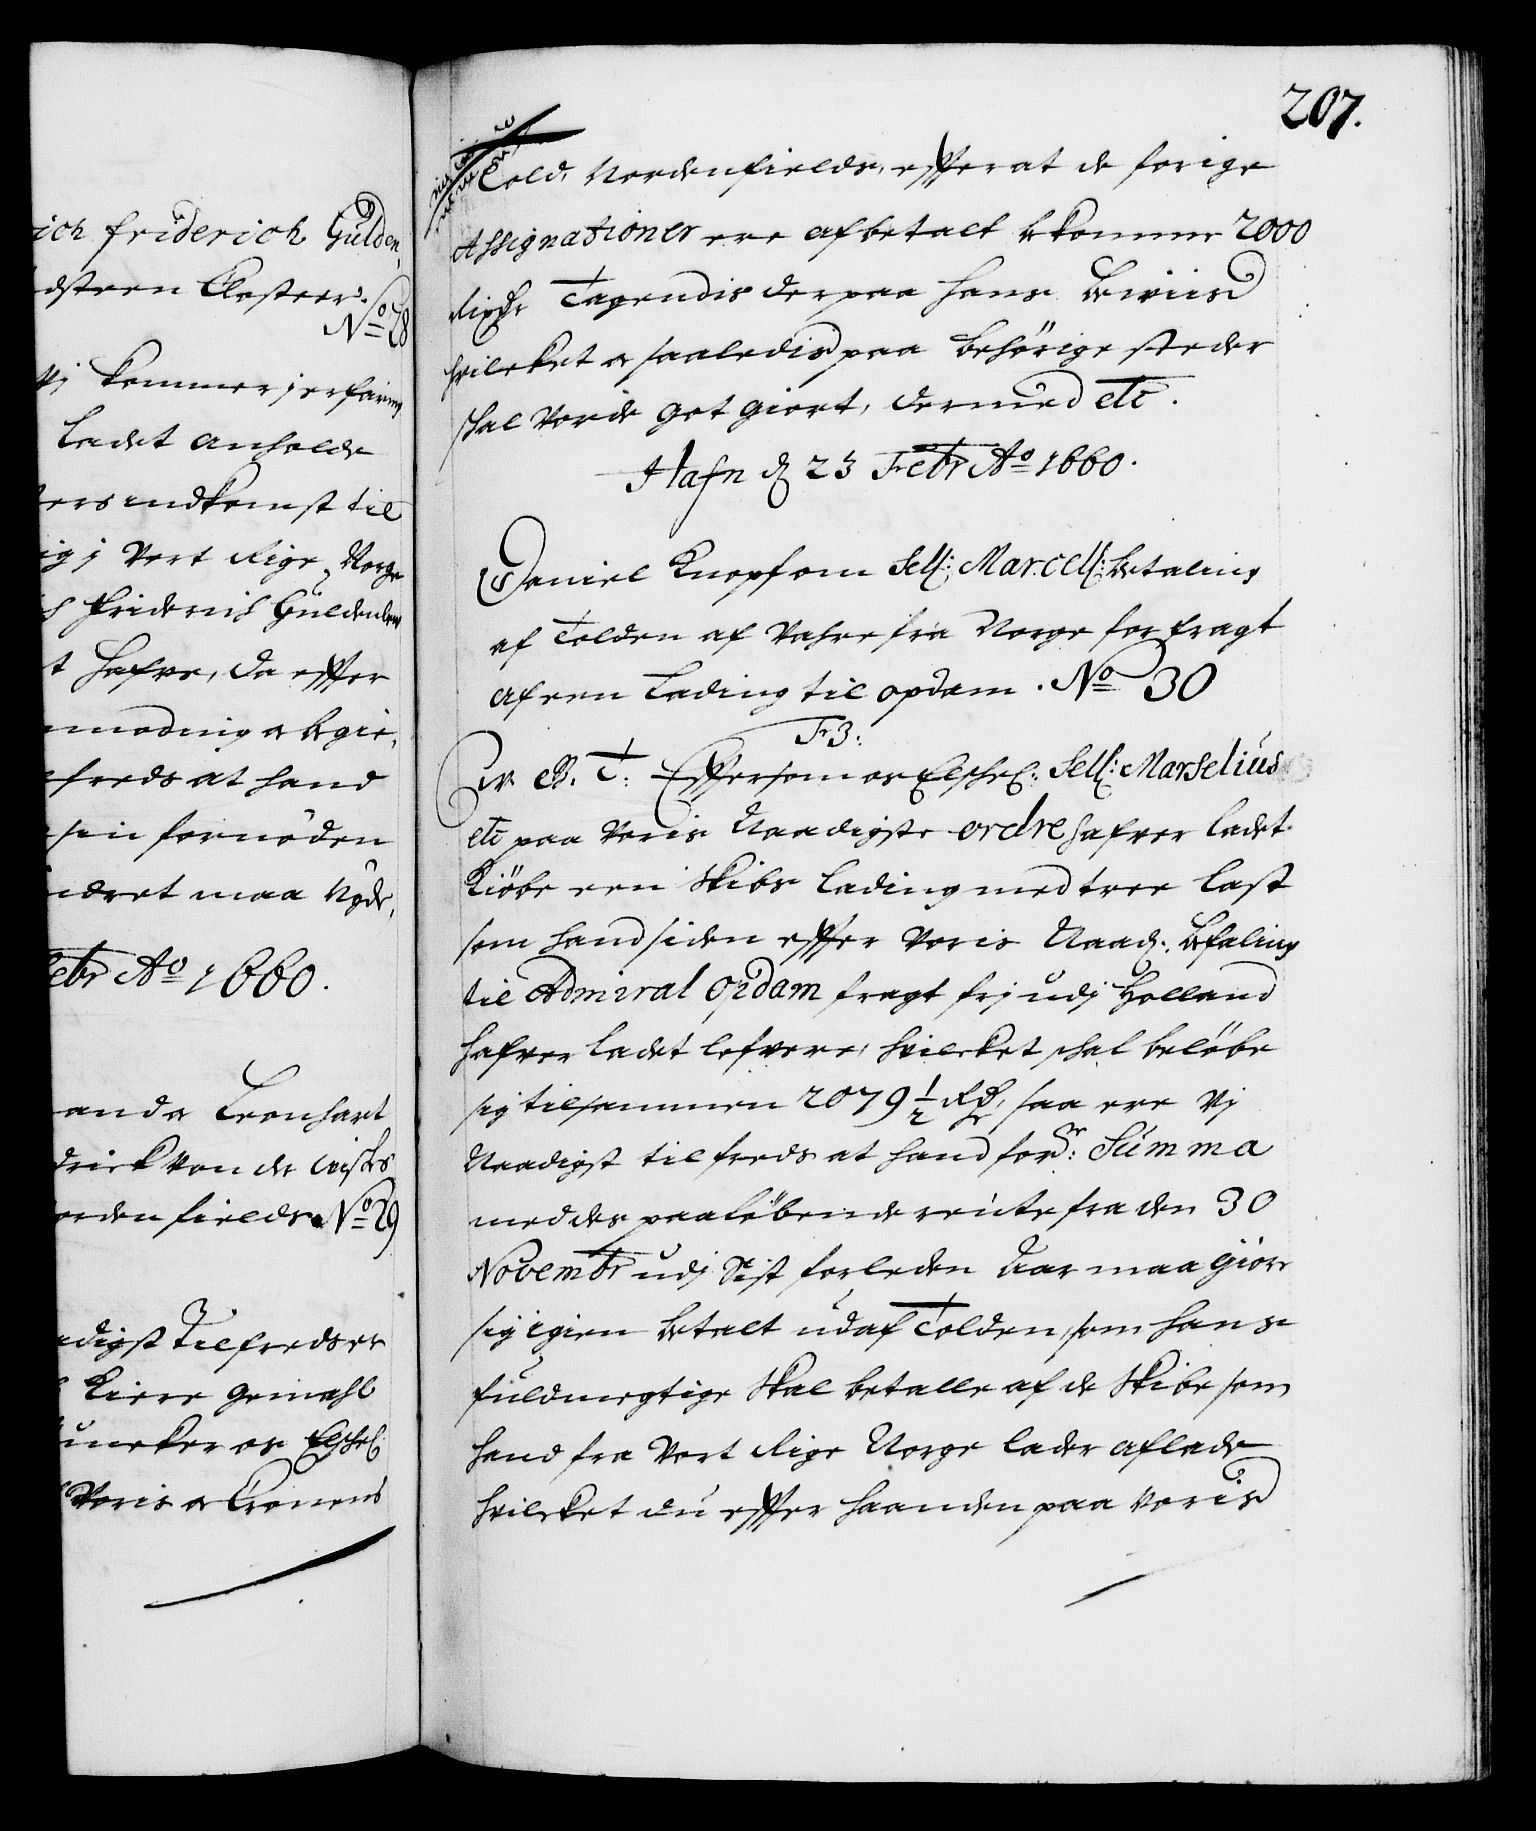 ich friderich Gülden
dsteen Closter.
No 28
Vj kommer j erfaring
ladet anholde
ers indkomst til
ig j Vort Rige Norge
Friderich Güldenlew
t hafve, da effter
modnig oc begie,
freds at hand
sin fornöden
ndret maa nyde,
Febr Ao 1660.
anda Leonhart
drick von der Wisks
orden fields No 29
adigst Tilfreds er
Kiere Gemahl
unker os Elschel:
Voris oc Cronens
207.
Told, Nordenfields, effter at de forige
Assignationer ere afbetalt bekomme 2000
Rixdr Tagendis derpaa hans beviis
hvilcket oc saaledis paa behörige steder
schal vorde got giort, dermed etc.
Hafn d 23 Febr Ao 1660.
Daniel Knopf om Self: Marcell: betaling
af Tolden af Vahre fra Norge for fragt
af een lading til opdam. No 30
Fr 3:
G. v. B. T: Effersom os Elschel: Self: Marselius
etc paa Voris Naadigste ordre hafver ladet
Kiöbe een Skibs lading med tree last
som hand siden effter Voris Naad: befaling
til Admiral Opdam fragt frj udj Holland
hafver ladet lefvere, hvilcket schal belöbe
sig tilsammen 2079 1/2 Rdr, saa ere Vj
Naadigst tilfreds at hand fornr: Summa
med des paalöbende rente fra den 30
Novembr udj Sist forleden Aar maa giöre
sig igien betalt udaf Tolden, som hans
fuldmegtige Skal betalle af de Skibe som
hand fra Vort Rige Norge lader aflade
hvilcket du effter haanden paa Voris